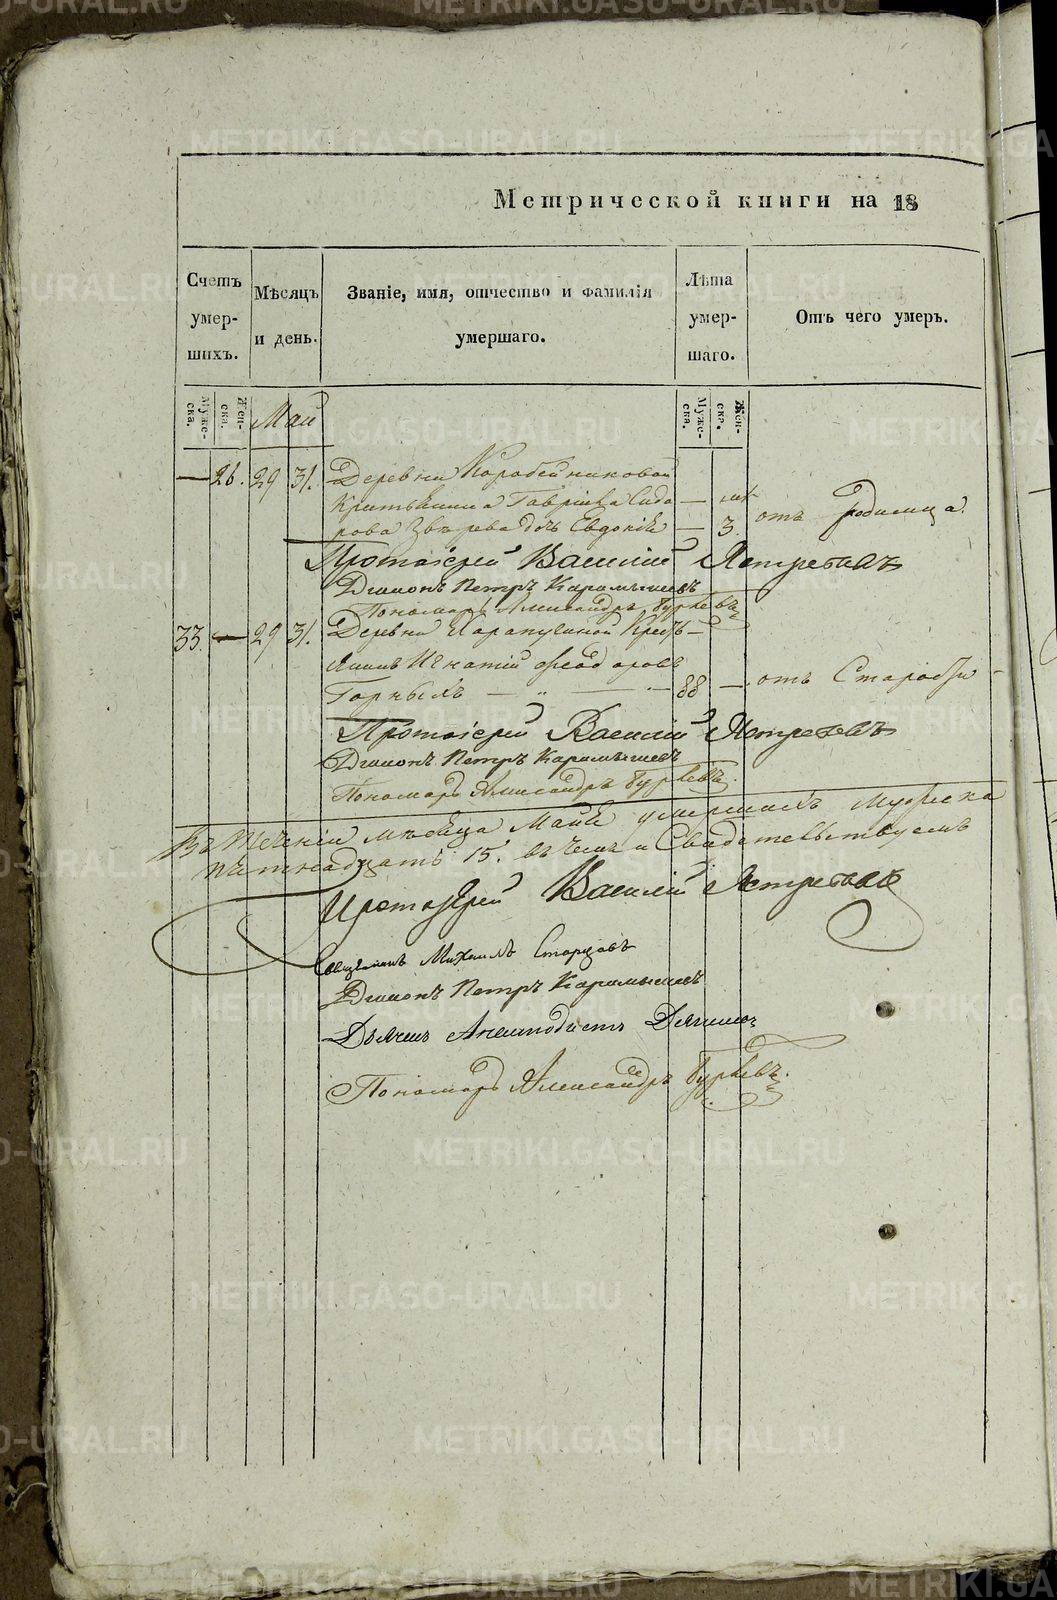 Метрической книги на 18
Счетъ умер- шихъ.
Мѣсяцъ и день.
Званіе, имя, отчество и фамилія умершаго.
Лѣта умер- шаго.
Отъ чего умеръ.
Муже- ска.
Жен- ска.
Май
Муже- ска.
Жен- ска.
— 26. 29 31. Деревни Коробейниковой
Крестьянина Гаврила Сидо — мѣ
рова Звѣрева дочь Евдокія — 3. отъ родимца.
Протоіерей Василий Ястребовъ
Діаконъ Петръ Карамышевъ
Пономарь Александръ
33. — 29 31. Деревни Кресть-
янинъ Игнатій Феодоровъ
Горныхъ — „ — 88 — отъ Старости
Протоіерей Василий Ястребовъ
Діаконъ Петръ Карамышевъ
Пономарь Александръ
Въ теченіи месяца Маія умершихъ мужеска
пятнадцать 15. въ чемъ и Свидетельствуемъ
Протоіерей Василій Ястребовъ
Священникъ Михаилъ Старцовъ
Діаконъ Петръ Карамышевъ
Дьячекъ
Пономарь Александръ
METRIKI.GASO-URAL.RU